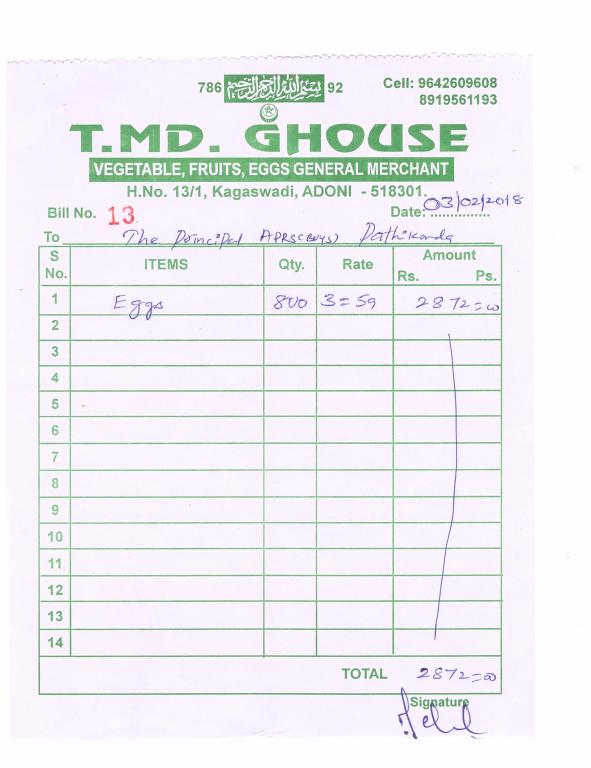 786 بسم الله الرحمن الرحيم 92
Cell: 9642609608
8919561193
T.MD. GHOUSE
VEGETABLE, FRUITS, EGGS GENERAL MERCHANT
H.No. 13/1, Kagaswadi, ADONI - 518301.
Bill No. 13 Date: 03/02/2018
To The Principal APRSC(Boys) Pathikonda
S No. ITEMS Qty. Rate Amount Rs. Ps.
1 Eggs 800 3=59 2872=00
2
3
4
5
6
7
8
9
10
11
12
13
14
TOTAL 2872=00
Signature